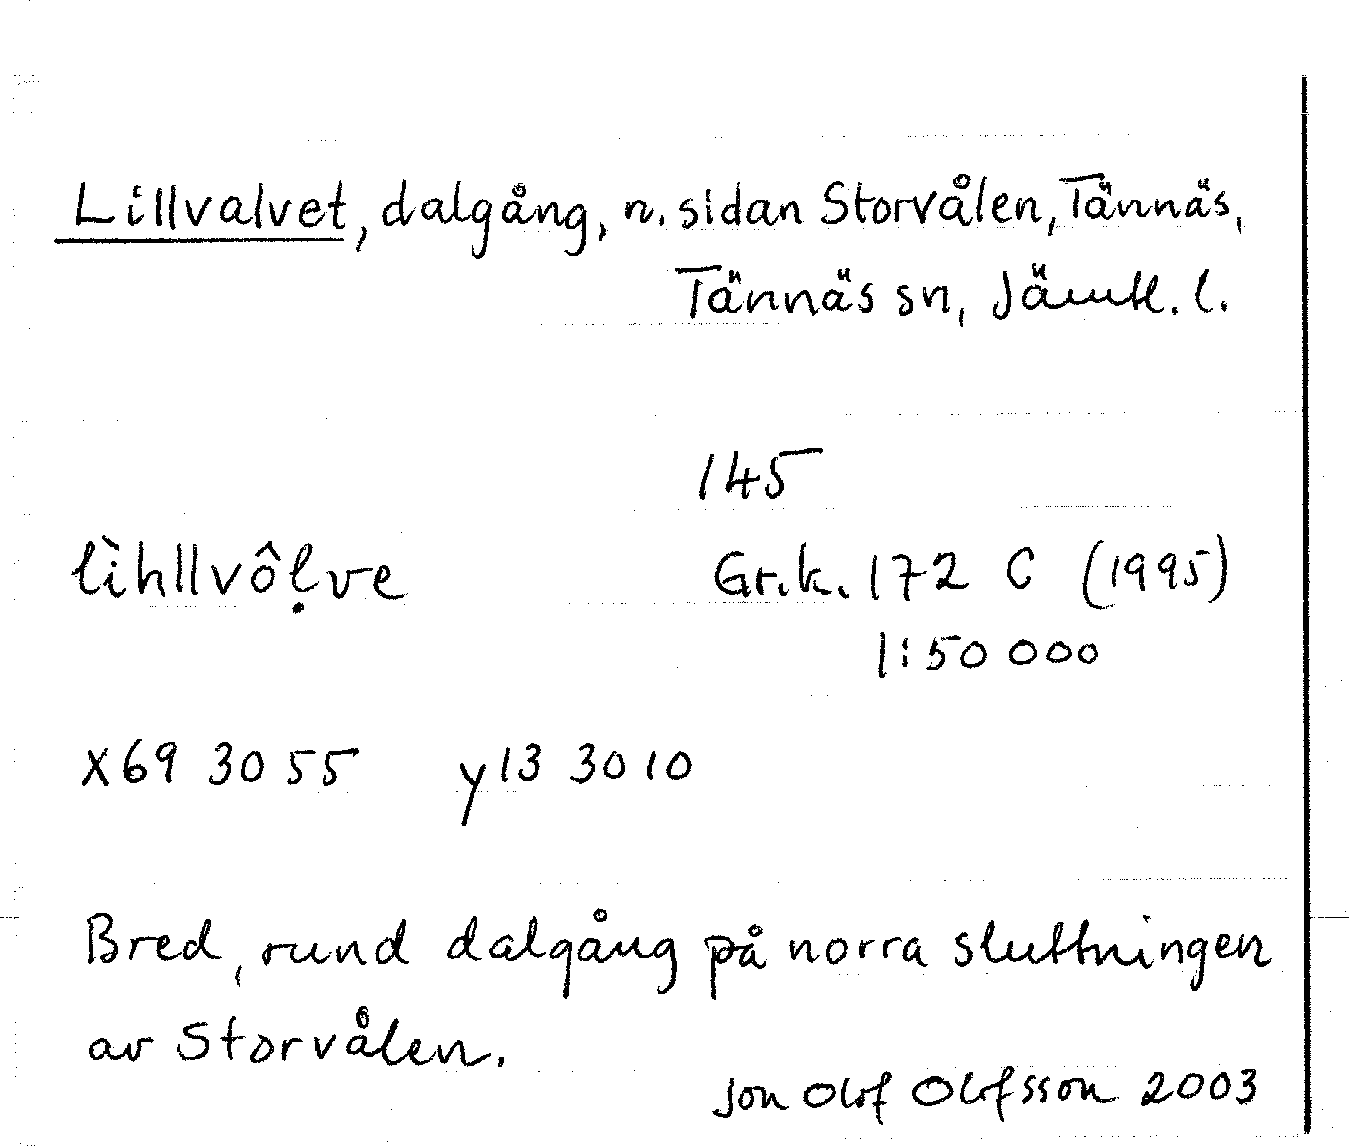 Lillvalvet, dalgång, n. sidan Storvålen, Tännäs,
Tännäs sn, Jämtl. l.
145
lìhllvôḷve Gr.k. 172 C (1995)
1:50 000
x69 30 55 y13 30 10
Bred, rund dalgång på norra sluttningen
av Storvålen.
Jon Olof Olofsson 2003